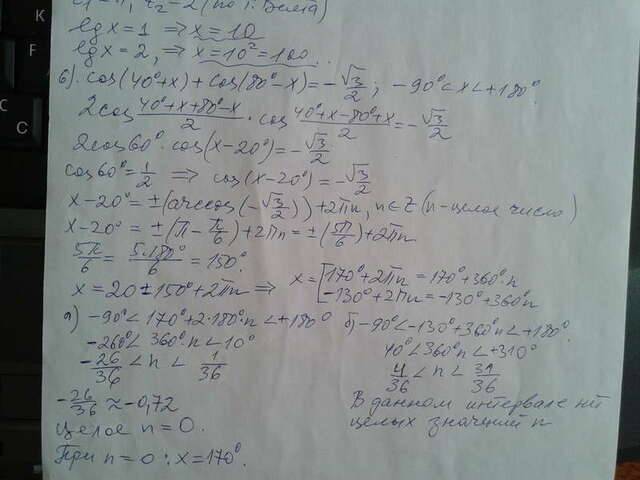 x₂=2 (по т. Виета)
lg x = 1 ⇒ x = 10
lg x = 2, ⇒ x = 10² = 100
б). cos(40°+x) + cos(80°-x) = -√3/2; -90°<x<+180°
2cos (40°+x+80°-x)/2 · cos (40°+x-80°+x)/2 = -√3/2
2cos60° · cos(x-20°) = -√3/2
cos60° = 1/2 ⇒ cos(x-20°) = -√3/2
x-20° = ±(arccos(-√3/2)) + 2πn, n∈Z (n-целое число)
x-20° = ±(π - π/6) + 2πn = ±(5π/6) + 2πn
5π/6 = 5·180°/6 = 150°.
x = 20 ± 150° + 2πn ⇒ x = [170° + 2πn = 170° + 360°·n
-130° + 2πn = -130° + 360°n
а) -90° < 170° + 2·180°n < +180°
-260° < 360°n < 10°
-26/36 < n < 1/36
-26/36 ≈ -0,72
Целое n = 0.
При n = 0: x = 170°.
б) -90° < -130° + 360°n < +180°
40° < 360°n < +310°
4/36 < n < 31/36
В данном интервале нет
целых значений n
K
C